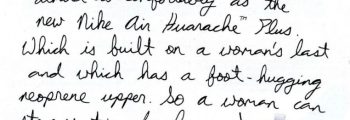 as the
new Nike Air Huarache™ Plus.
Which is built on a woman's last
and which has a foot-hugging
neoprene upper. So a woman can